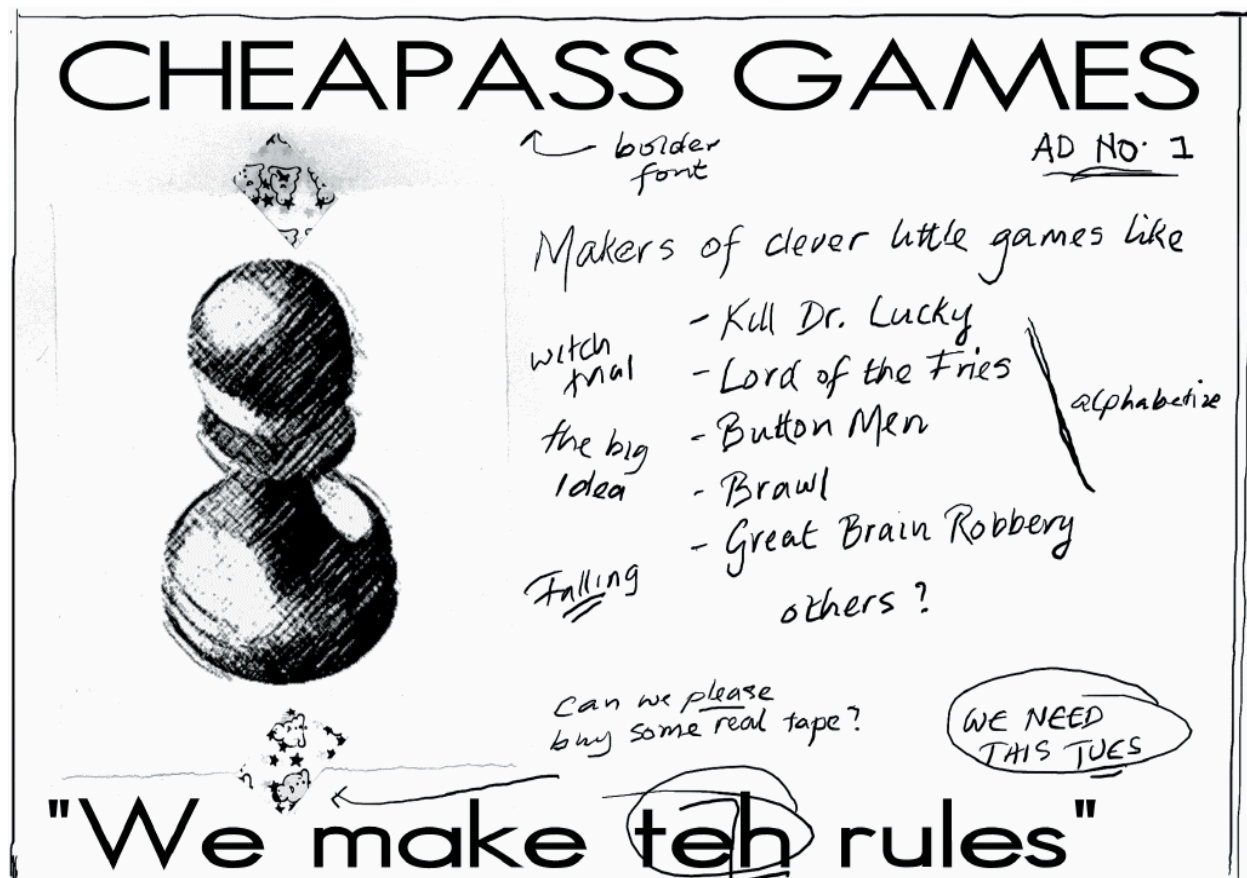 CHEAPASS GAMES
bolder
font
AD NO. 1
Makers of clever little games like
- Kill Dr. Lucky
- Lord of the Fries
- Button Men
- Brawl
- Great Brain Robbery
others?
witch
trial
the big
idea
Falling
alphabetize
can we please
buy some real tape?
WE NEED
THIS TUES
"We make teh rules"